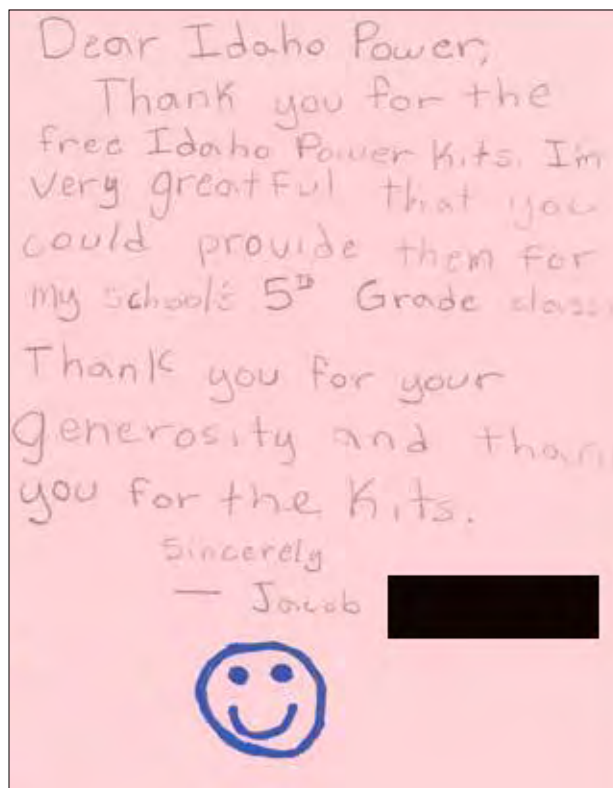 Dear Idaho Power,
Thank you for the
free Idaho Power Kits. I'm
very greatful that you
could provide them for
my school's 5th Grade class
Thank you for your
generosity and than
you for the Kits.
Sincerely
— Jacob